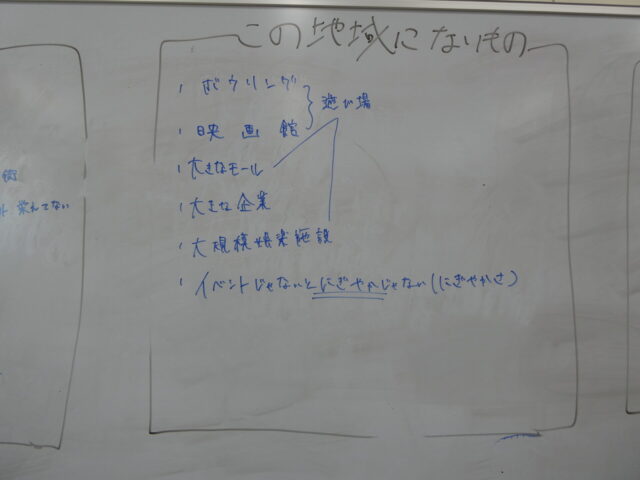 この地域にないもの
・ボウリング
・映画館
遊び場
・大きなモール
・大きな企業
・大規模娯楽施設
・イベントじゃないとにぎやかじゃない(にぎやかさ)
術
栄えてない